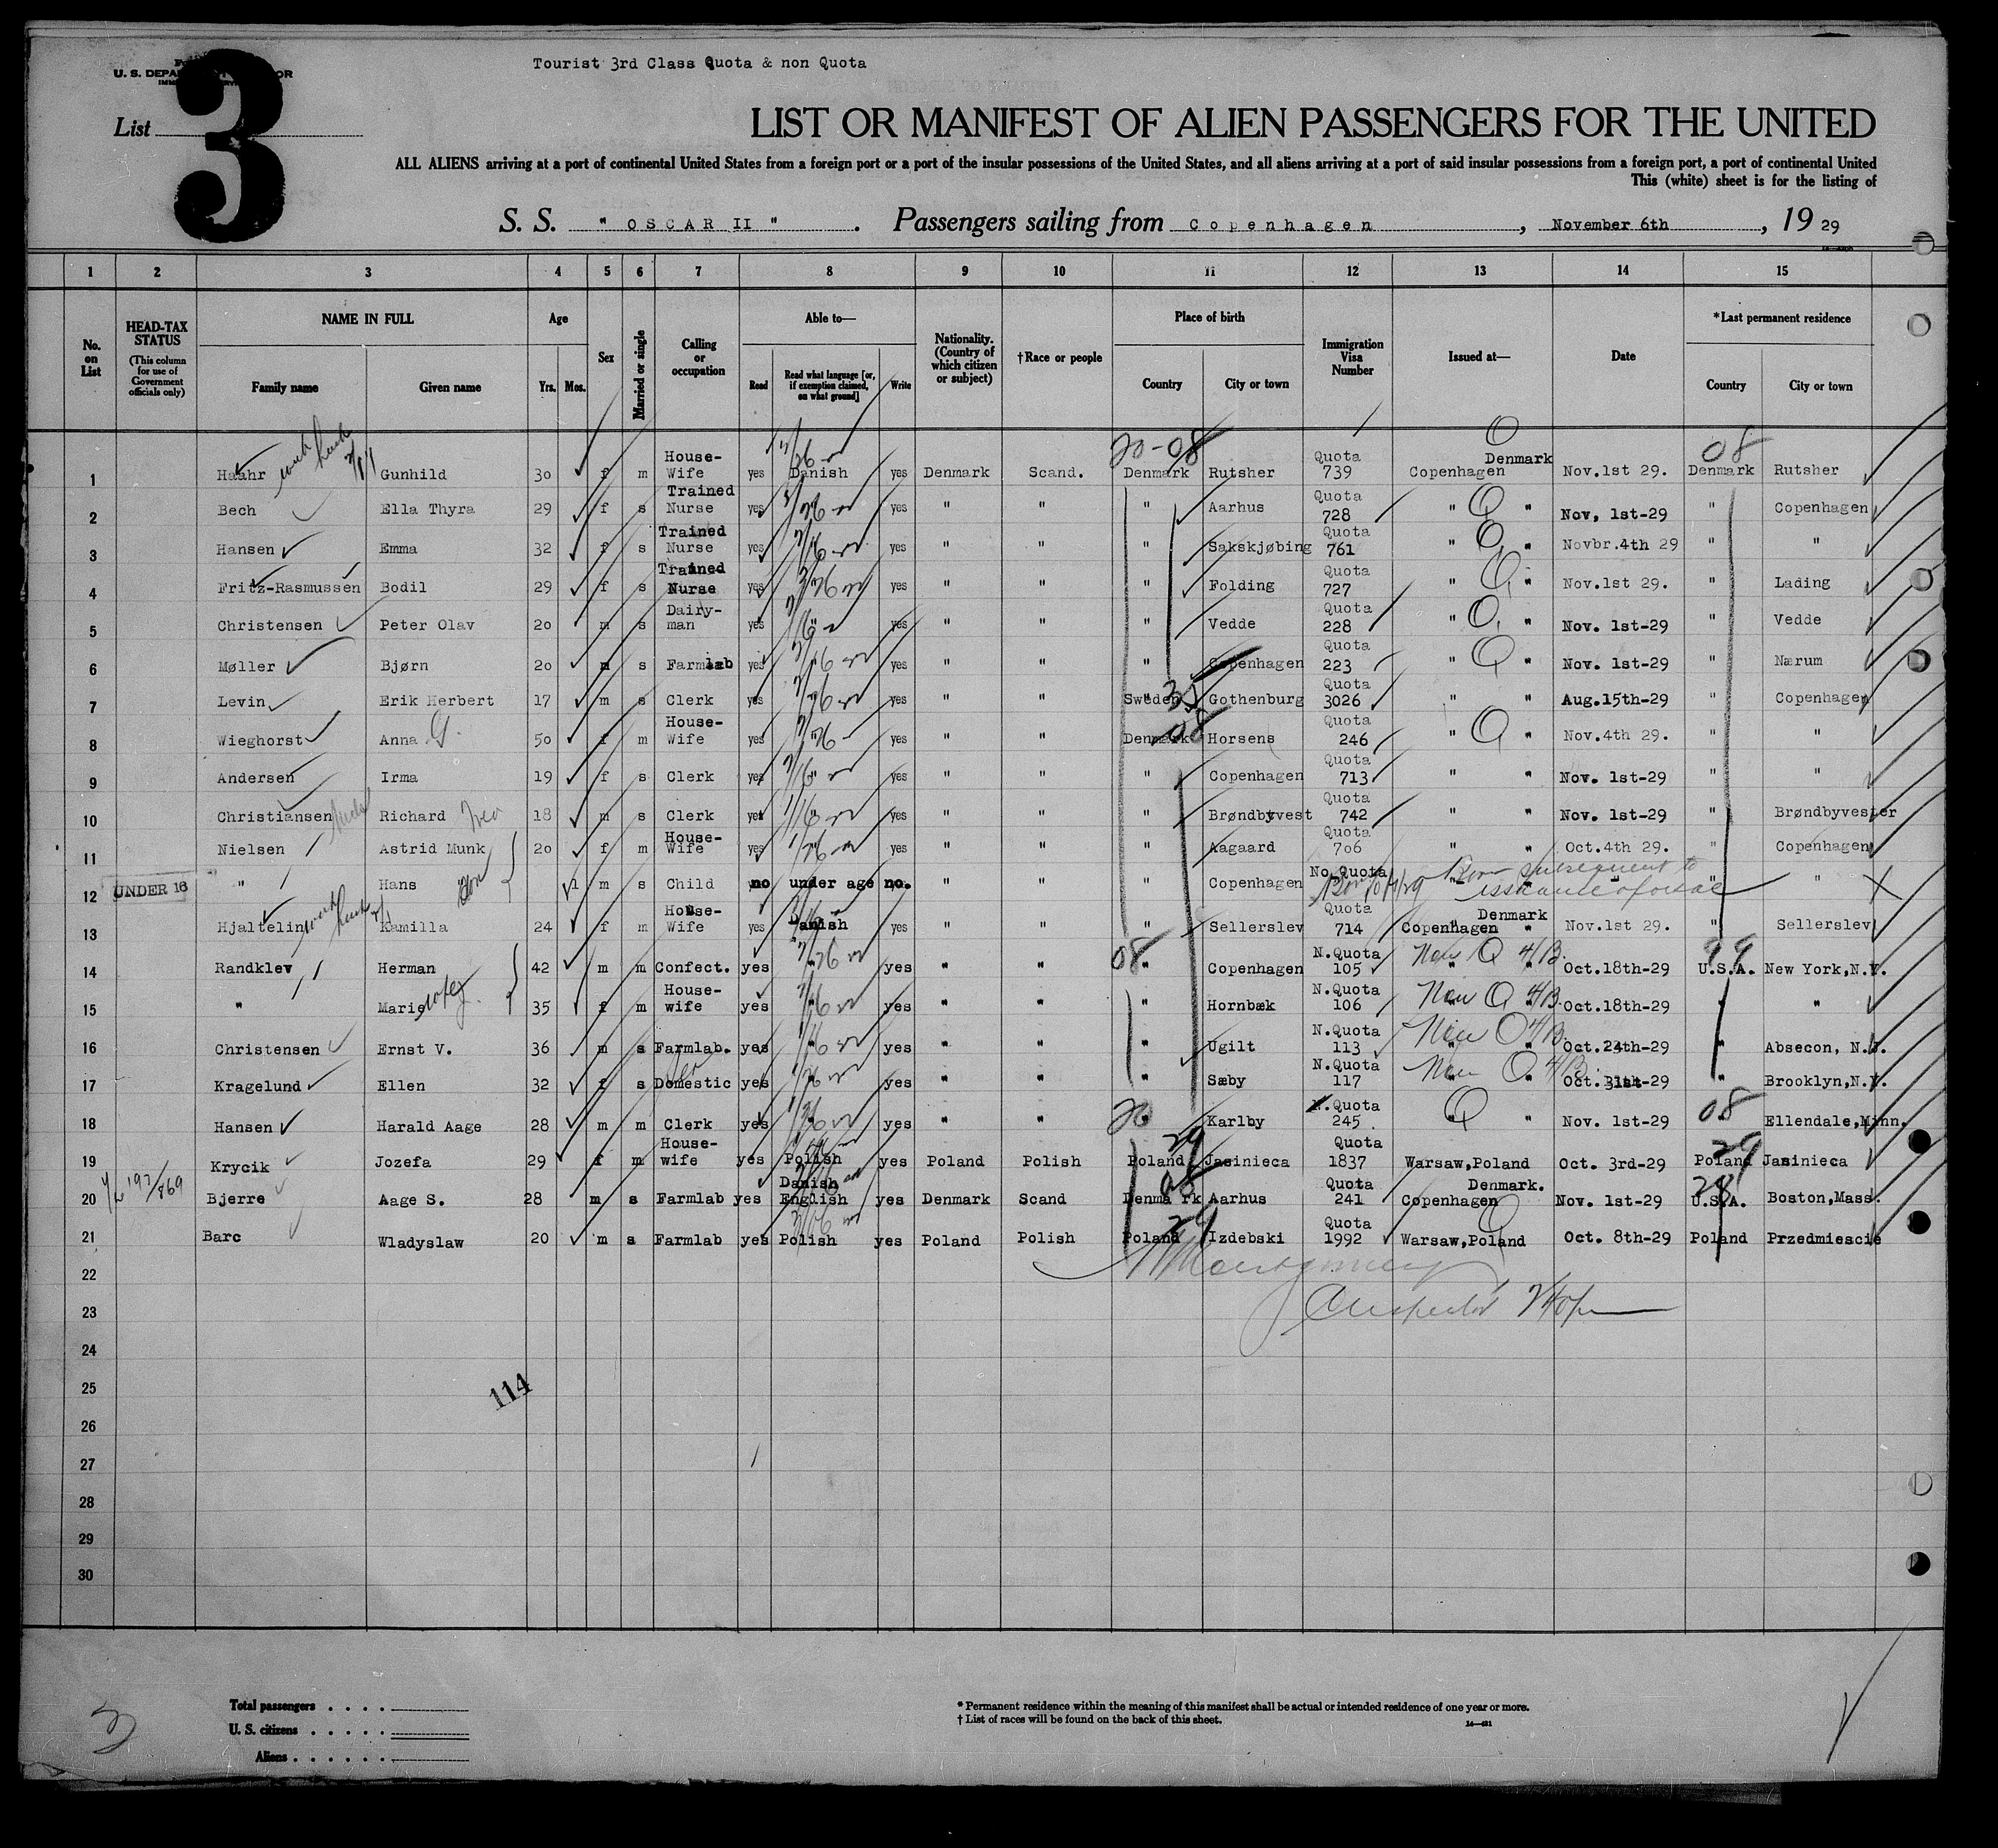 Tourist 3rd Class Quota & non Quota
U. S. DEPA
List 3
LIST OR MANIFEST OF ALIEN PASSENGERS FOR THE UNITED
ALL ALIENS arriving at a port of continental United States from a foreign port or a port of the insular possessions of the United States, and all aliens arriving at a port of said insular possessions from a foreign port, a port of continental United
This (white) sheet is for the listing of
S. S. " OSCAR II " . Passengers sailing from Copenhagen , November 6th , 19 29
1 2 3 4 5 6 7 8 9 10 11 12 13 14 15
No. on List
HEAD-TAX STATUS (This column for use of Government officials only)
NAME IN FULL
Family name
Given name
Age
Yrs. Mos.
Sex
Married or single
Calling or occupation
Able to—
Read
Read what language [or, if exemption claimed, on what ground]
Write
Nationality. (Country of which citizen or subject)
†Race or people
Place of birth
Country
City or town
Immigration Visa Number
Issued at—
Date
*Last permanent residence
Country
City or town
20-08 08
1 Haahr Gunhild 30 f m House-Wife yes Danish yes Denmark Scand. Denmark Rutsher Quota 739 Copenhagen Denmark Nov.1st 29. Denmark Rutsher
2 Bech Ella Thyra 29 f s Trained Nurse yes yes " " " Aarhus Quota 728 " " Nov, 1st-29 " Copenhagen
3 Hansen Emma 32 f s Trained Nurse yes yes " " " Sakskjøbing Quota 761 " " Novbr.4th 29 " "
4 Fritz-Rasmussen Bodil 29 f s Trained Nurse yes yes " " " Folding Quota 727 " " Nov.1st 29. " Lading
5 Christensen Peter Olav 20 m s Dairy-man yes " yes " " " Vedde Quota 228 " " Nov. 1st-29 " Vedde
6 Møller Bjørn 20 m s Farmlab yes yes " " " Copenhagen Quota 223 " " Nov. 1st-29 " Nærum
7 Levin Erik Herbert 17 m s Clerk yes " yes " " Sweden Gothenburg Quota 3026 " " Aug.15th-29 " Copenhagen
8 Wieghorst Anna G. 50 f m House-Wife yes " yes " " Denmark 08 Horsens Quota 246 " " Nov.4th 29. " "
9 Andersen Irma 19 f s Clerk yes " yes " " " Copenhagen Quota 713 " " Nov. 1st-29 " "
10 Christiansen Richard 18 m s Clerk yes yes " " " Brøndbyvest Quota 742 " " Nov. 1st-29 " Brøndbyvester
11 Nielsen Astrid Munk 20 f m House-Wife yes " yes " " " Aagaard Quota 706 " " Oct.4th 29. " Copenhagen
12 UNDER 16 " Hans son 1 m s Child no under age no. " " " Copenhagen No Quota Born subsequent to issuance of visae " "
13 Hjaltelin Kamilla 24 f m House-Wife yes Danish yes " " " Sellerslev Quota 714 Copenhagen Denmark Nov.1st 29. " Sellerslev
14 Randklev Herman 42 m m Confect. yes " yes " " 08 " Copenhagen N.Quota 105 Oct.18th-29 U.S.A. New York,N.Y.
15 " Marie wife 35 f m House-wife yes " yes " " " Hornbæk N.Quota 106 Oct.18th-29 " "
16 Christensen Ernst V. 36 m s Farmlab. yes " yes " " " Ugilt N.Quota 113 Oct.24th-29 " Absecon, N.J.
17 Kragelund Ellen 32 f s Domestic yes " yes " " " Sæby N.Quota 117 Oct.31st-29 " Brooklyn,N.Y.
18 Hansen Harald Aage 28 m m Clerk yes " yes " " 20 " Karlby N.Quota 245 " " Nov. 1st-29 08 Ellendale,Minn.
19 Krycik Jozefa 29 f m House-wife yes Polish yes Poland Polish Poland 29 Jasinieca Quota 1837 Warsaw,Poland Oct. 3rd-29 Poland 29 Jasinieca
20 Bjerre Aage S. 28 m s Farmlab yes Danish English yes Denmark Scand Denmark 08 Aarhus Quota 241 Copenhagen Denmark. Nov. 1st-29 U.S.A. Boston,Mass.
21 Barc Wladyslaw 20 m s Farmlab yes Polish yes Poland Polish Poland 29 Izdebski Quota 1992 Warsaw,Poland Oct. 8th-29 Poland Przedmiescie
22 Montgomery
23 Inspector
24
25
114
26
27
28
29
30
Total passengers . . . .
U. S. citizens . . . . .
Aliens . . . . . .
* Permanent residence within the meaning of this manifest shall be actual or intended residence of one year or more.
† List of races will be found on the back of this sheet.
3